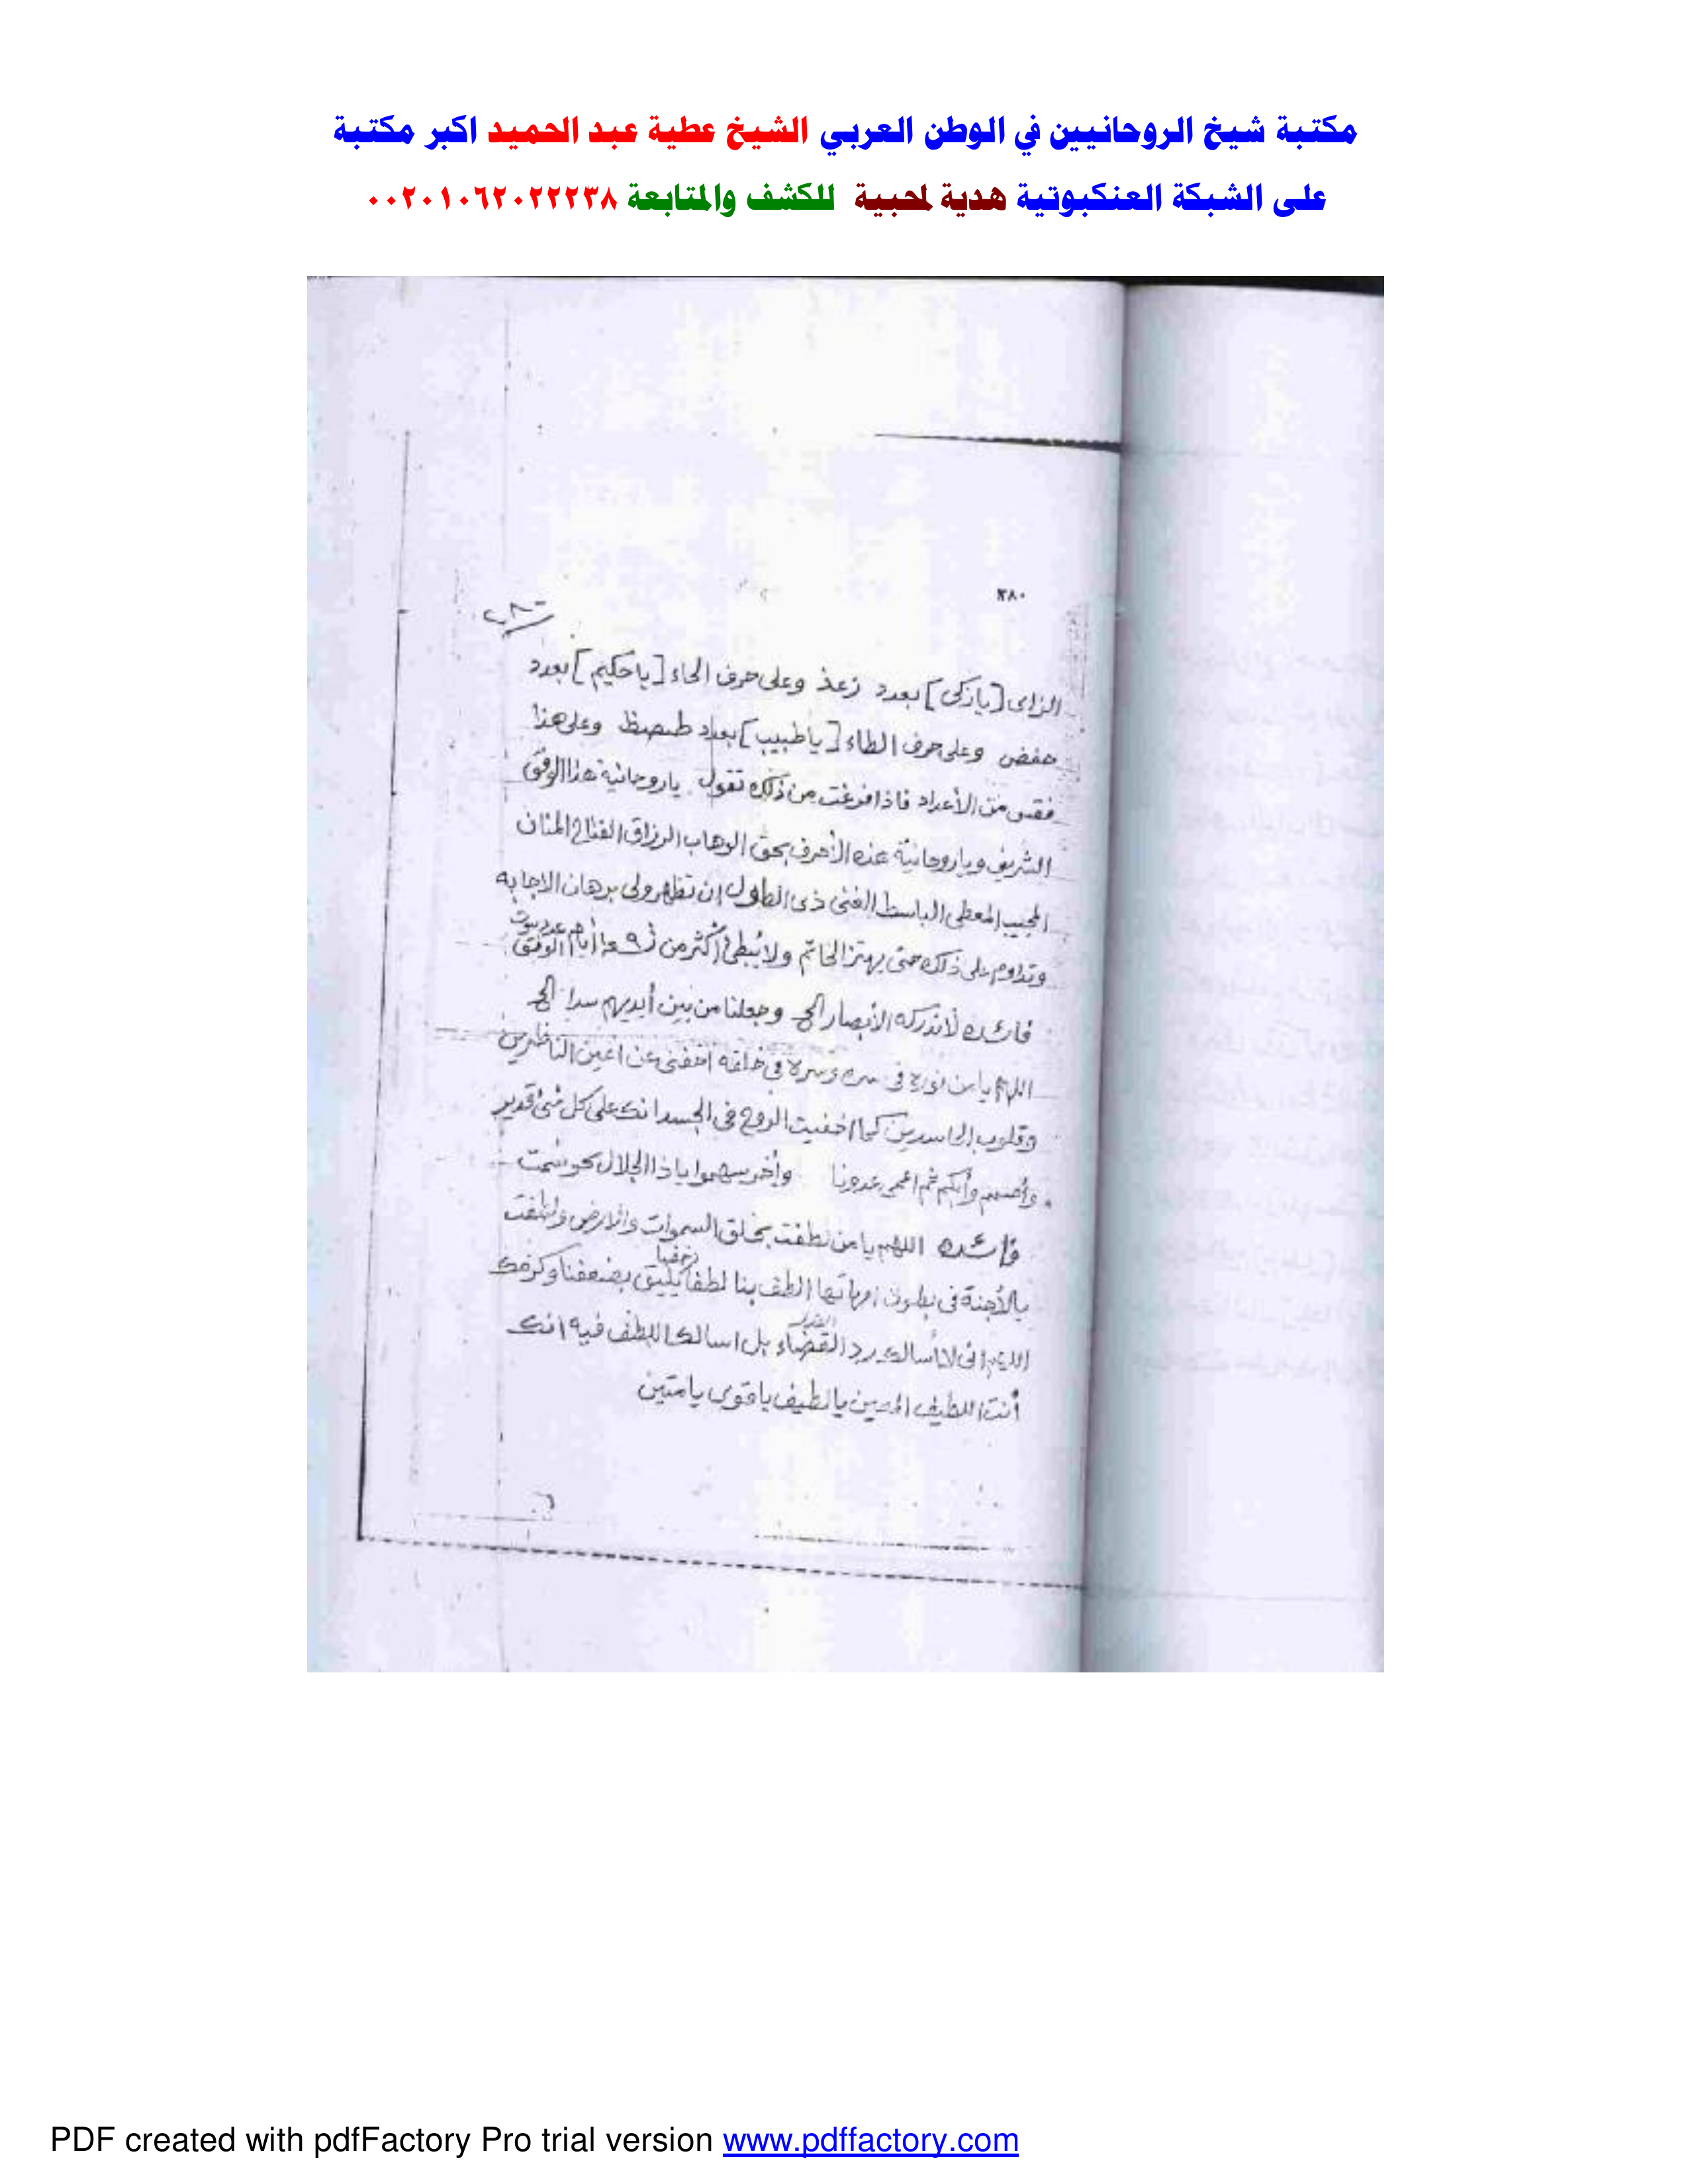 مكتبة شيخ الروحانيين في الوطن العربي الشيخ عطية عبد الحميد اكبر مكتبة
على الشبكة العنكبوتية هدية لمحبية للكشف والمتابعة ٠٠٢٠١٠٦٢٠٢٢٢٣٨
٣٨٠
الزاى [يازكى] بعدد زعذ وعلى حرف الحاء [ياحكيم] بعدد
حفض وعلى حرف الطاء [ياطبيب] بعدد طصظ وعلى هذا
فقس من الأعداد فاذا فرغت من ذلك تقول ياروحانية هذا الوفق
الشريف وياروحانية هذه الأحرف بحق الوهاب الرزاق الفتاح المنان
المجيب المعطى الباسط الغنى ذى الطول ان تظهرولى برهان الاجابه
وتداوم على ذلك حتى يهتز الخاتم ولا يُبطئ أكثر من أيام عدد بيوت الوفق
فائده لا تدركه الأبصار الخ وجعلنا من بين أيديهم سدا الخ
اللهم يا من نوره فى سره وسره فى خلقه اخفنى عن اعين الناظرين
وقلوب الحاسدين كما اخفيت الروح فى الجسد انك على كل شئ قدير
وأصمهم وأبكم ثم اعمى عدونا وأخرسهموا ياذا الجلال
فائده اللهم يا من لطفت بخلق السموات والارض ولطفت
بالأجنة فى بطون امهاتها الطف بنا لطفا خفيا يليق بضعفنا وكرمك
اللهم انى لا أسالك رد القضاء بل اسالك اللطف فيه انك
أنت اللطيف المعين يالطيف ياقوى يامتين
PDF created with pdfFactory Pro trial version www.pdffactory.com